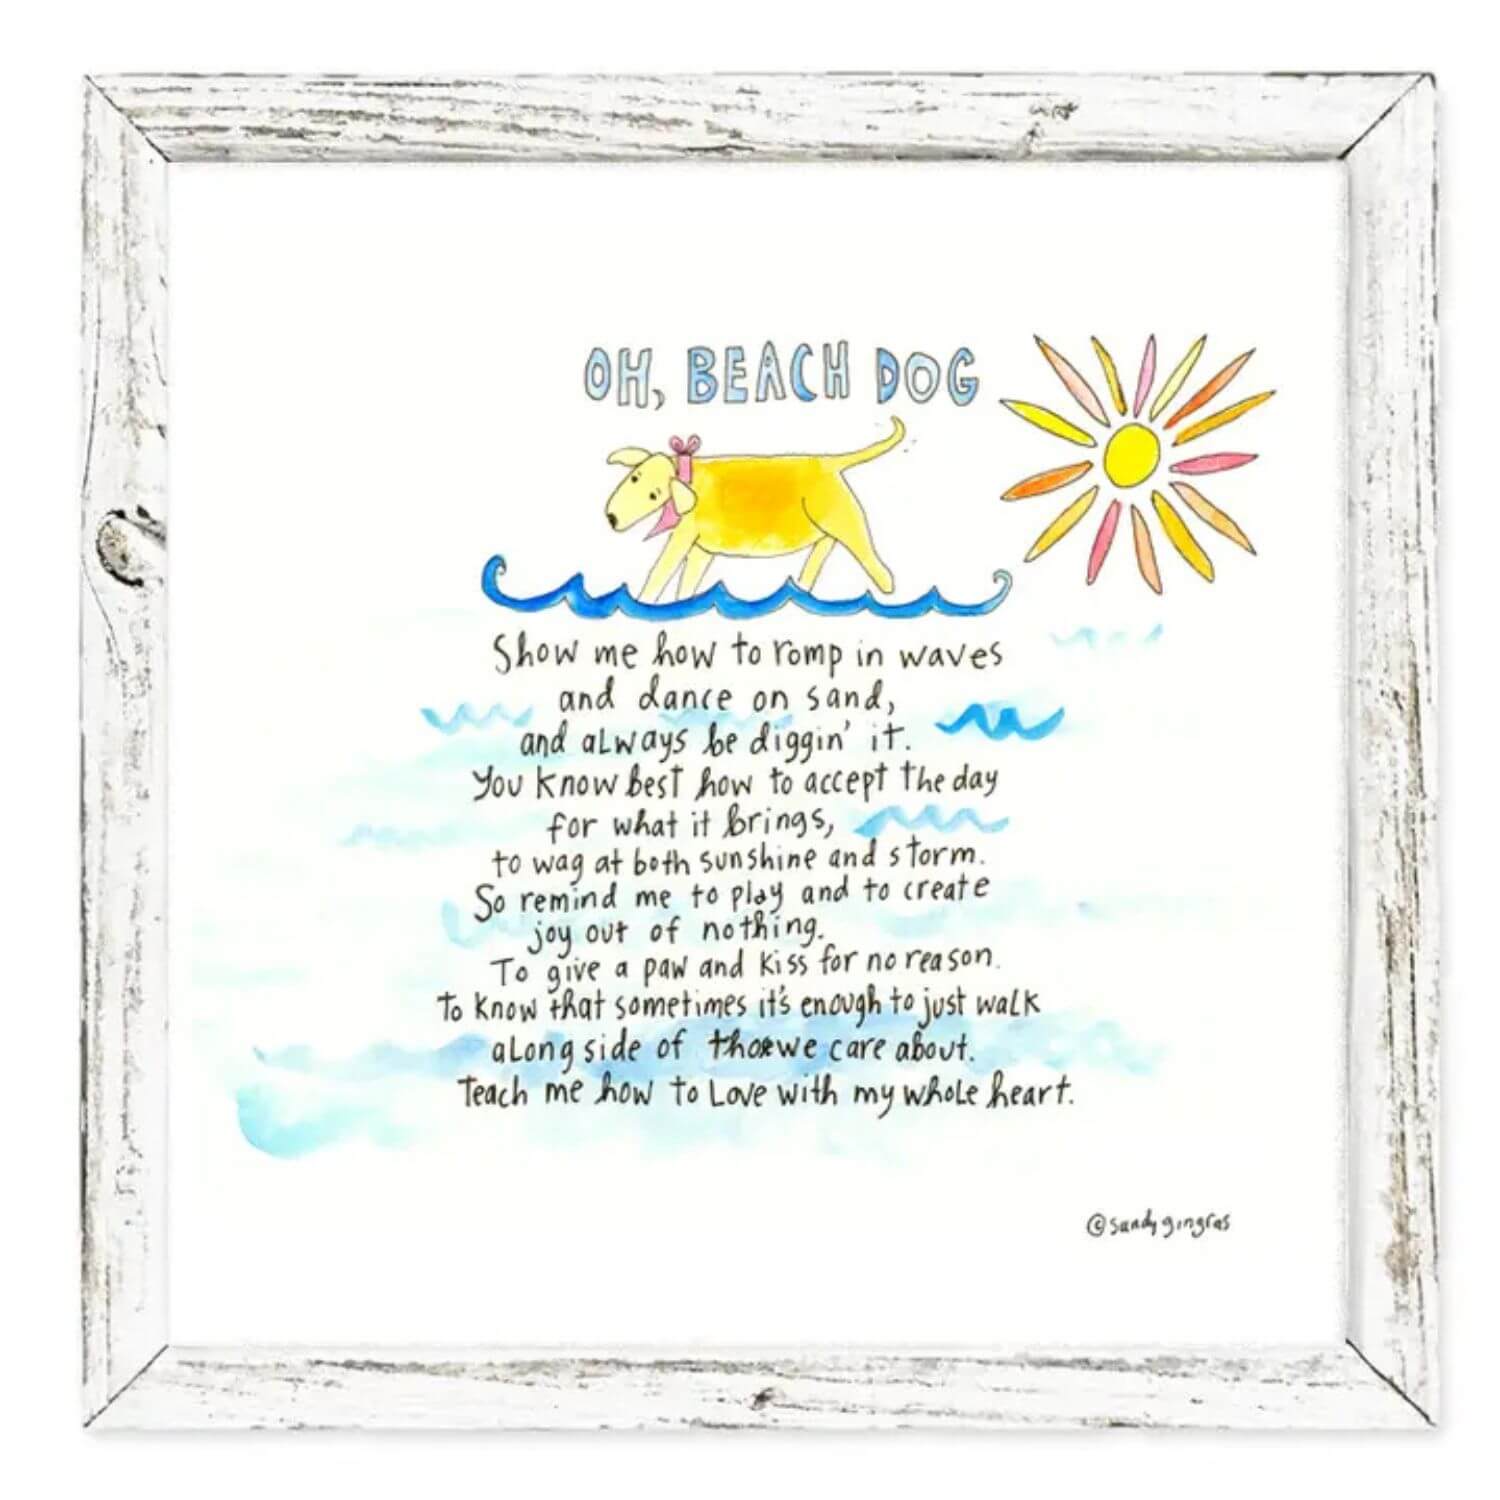 OH, BEACH DOG
Show me how to romp in waves
and dance on sand,
and always be diggin' it.
You know best how to accept the day
for what it brings,
to wag at both sunshine and storm.
So remind me to play and to create
joy out of nothing.
To give a paw and kiss for no reason.
To know that sometimes it's enough to just walk
along side of those we care about.
Teach me how to Love with my whole heart.
©sandygingras